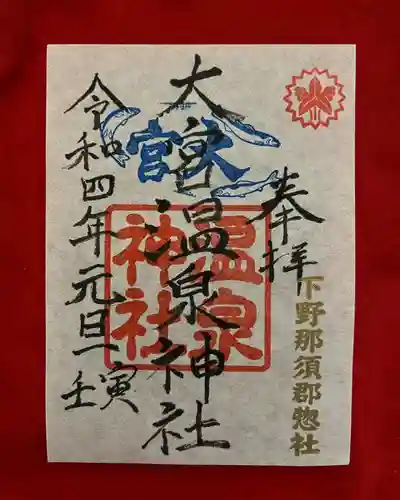 奉拝
下野那須郡惣社
大宮温泉神社
大宮
温泉神社
令和四年元旦
壬寅